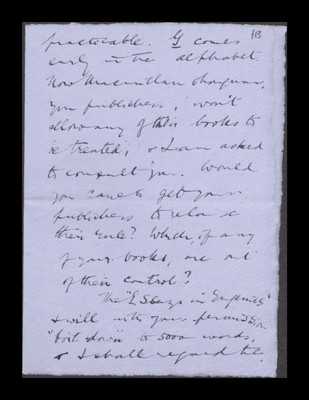 18
practicable. G comes
early in the alphabet.
Now Macmillan & Chapman,
your publishers, won't
allow any of their books to
be treated, & I am asked
to consult you. Would
you care to get your
publishers to relax
their rule? Which, if any
of your books, are out
of their control?
The "Essays in
I will with your permission
"boil down" to 5000 words,
& I shall regard the